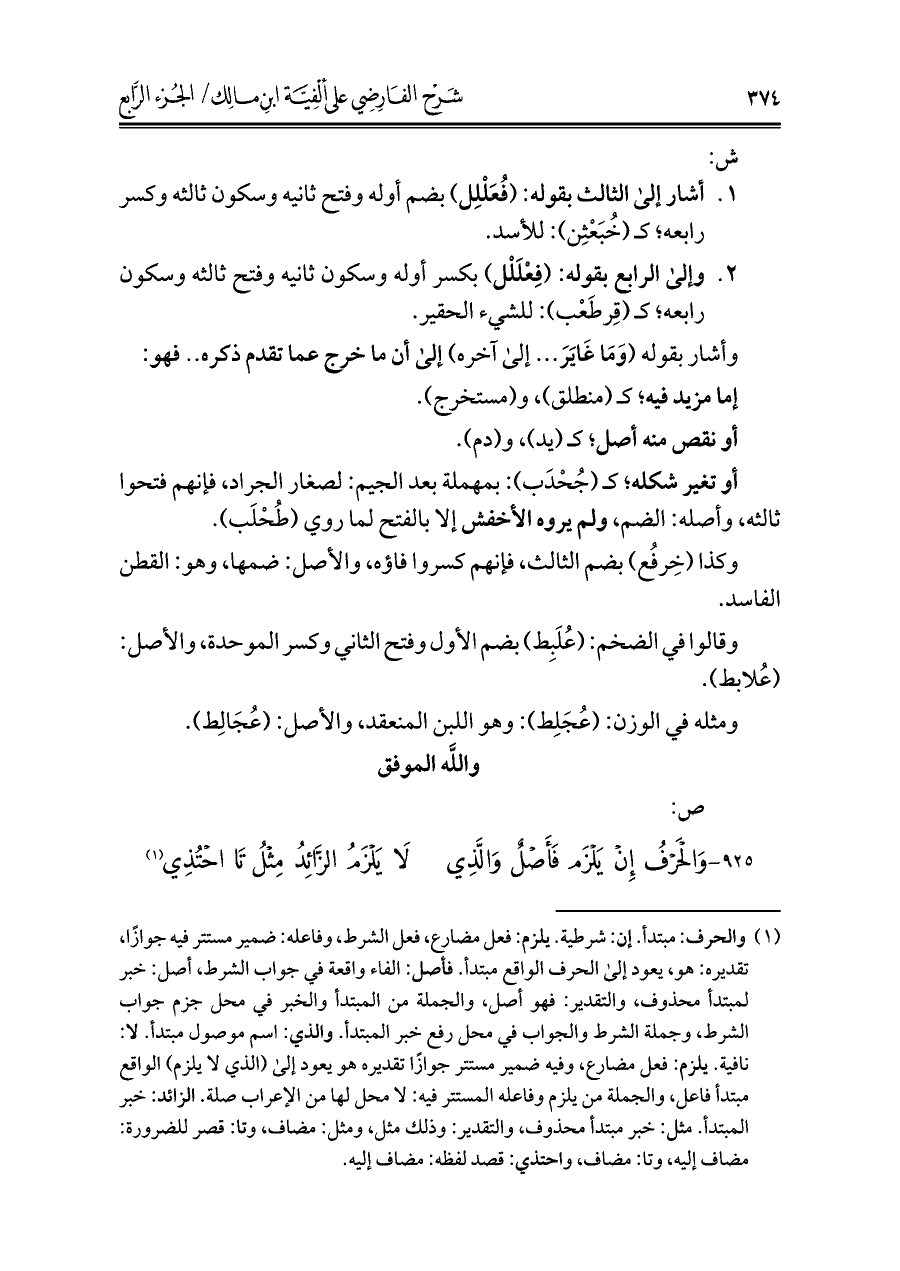 ٣٧٤ شَرْح الفَارِضِي على ألْفِيَّة ابن مالك/ الجُزء الرَّابع
ش:
١. أشار إلىٰ الثالث بقوله: (فُعَلْلِل) بضم أوله وفتح ثانيه وسكون ثالثه وكسر
رابعه؛ كـ (خُبَعْثِن): للأسد.
٢. وإلىٰ الرابع بقوله: (فِعْلَلْل) بكسر أوله وسكون ثانيه وفتح ثالثه وسكون
رابعه؛ كـ (قِرطَعْب): للشيء الحقير.
وأشار بقوله (وَمَا غَايَرَ... إلىٰ آخره) إلىٰ أن ما خرج عما تقدم ذكره.. فهو:
إما مزيد فيه؛ كـ (منطلق)، و(مستخرج).
أو نقص منه أصل؛ كـ (يد)، و(دم).
أو تغير شكله؛ كـ (جُحْدَب): بمهملة بعد الجيم: لصغار الجراد، فإنهم فتحوا
ثالثه، وأصله: الضم، ولم يروه الأخفش إلا بالفتح لما روي (طُحْلَب).
وكذا (خِرفُع) بضم الثالث، فإنهم كسروا فاؤه، والأصل: ضمها، وهو: القطن
الفاسد.
وقالوا في الضخم: (عُلَبِط) بضم الأول وفتح الثاني وكسر الموحدة، والأصل:
(عُلابط).
ومثله في الوزن: (عُجَلِط): وهو اللبن المنعقد، والأصل: (عُجَالِط).
واللَّه الموفق
ص:
٩٢٥-وَالْحَرْفُ إِنْ يَلْزَم فَأَصْلٌ وَالَّذِي لَا يَلْزَمُ الزَّائِدُ مِثْلُ تَا احْتُذِي(١)
(١) والحرف: مبتدأ. إن: شرطية. يلزم: فعل مضارع، فعل الشرط، وفاعله: ضمير مستتر فيه جوازًا،
تقديره: هو، يعود إلىٰ الحرف الواقع مبتدأ. فأصل: الفاء واقعة في جواب الشرط، أصل: خبر
لمبتدأ محذوف، والتقدير: فهو أصل، والجملة من المبتدأ والخبر في محل جزم جواب
الشرط، وجملة الشرط والجواب في محل رفع خبر المبتدأ. والذي: اسم موصول مبتدأ. لا:
نافية. يلزم: فعل مضارع، وفيه ضمير مستتر جوازًا تقديره هو يعود إلىٰ (الذي لا يلزم) الواقع
مبتدأ فاعل، والجملة من يلزم وفاعله المستتر فيه: لا محل لها من الإعراب صلة. الزائد: خبر
المبتدأ. مثل: خبر مبتدأ محذوف، والتقدير: وذلك مثل، ومثل: مضاف، وتا: قصر للضرورة:
مضاف إليه، وتا: مضاف، واحتذي: قصد لفظه: مضاف إليه.